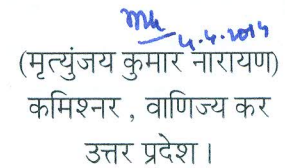 4.4.2014
(मृत्युंजय कुमार नारायण)
कमिश्नर , वाणिज्य कर
उत्तर प्रदेश ।